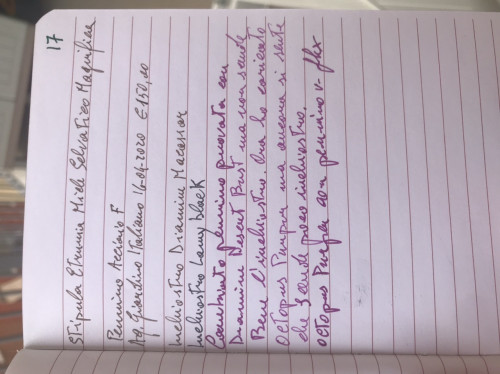 17
Stipula Etruria Miele Selvatico Magnifica
Pennino Acciaio F
Acq. Giardino Italiano 16-04-2020 € 150,00
Inchiostro Diamine Macassar
Inchiostro Lamy black
Cambiato pennino provata con
Diamine Desert Bust ma non scende
Bene l'inchiostro. Ora ho caricato
Octopus ma ancora si sente
che scende poco inchiostro.
Octopus con pennino v-flex